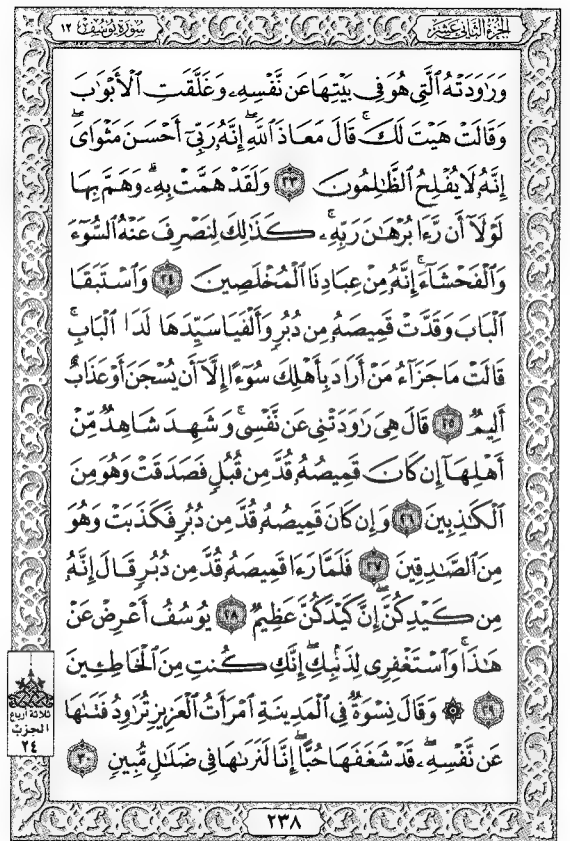 سورة يوسف ١٢
الجزء الثاني عشر
وَرَٰوَدَتْهُ ٱلَّتِى هُوَ فِى بَيْتِهَا عَن نَّفْسِهِۦ وَغَلَّقَتِ ٱلْأَبْوَٰبَ
وَقَالَتْ هَيْتَ لَكَ ۚ قَالَ مَعَاذَ ٱللَّهِ ۖ إِنَّهُۥ رَبِّىٓ أَحْسَنَ مَثْوَاىَ ۖ
إِنَّهُۥ لَا يُفْلِحُ ٱلظَّٰلِمُونَ ٢٣ وَلَقَدْ هَمَّتْ بِهِۦ ۖ وَهَمَّ بِهَا
لَوْلَآ أَن رَّءَا بُرْهَٰنَ رَبِّهِۦ ۚ كَذَٰلِكَ لِنَصْرِفَ عَنْهُ ٱلسُّوٓءَ
وَٱلْفَحْشَآءَ ۚ إِنَّهُۥ مِنْ عِبَادِنَا ٱلْمُخْلَصِينَ ٢٤ وَٱسْتَبَقَا
ٱلْبَابَ وَقَدَّتْ قَمِيصَهُۥ مِن دُبُرٍ وَأَلْفَيَا سَيِّدَهَا لَدَا ٱلْبَابِ ۚ
قَالَتْ مَا جَزَآءُ مَنْ أَرَادَ بِأَهْلِكَ سُوٓءًا إِلَّآ أَن يُسْجَنَ أَوْ عَذَابٌ
أَلِيمٌ ٢٥ قَالَ هِىَ رَٰوَدَتْنِى عَن نَّفْسِى ۚ وَشَهِدَ شَاهِدٌ مِّنْ
أَهْلِهَآ إِن كَانَ قَمِيصُهُۥ قُدَّ مِن قُبُلٍ فَصَدَقَتْ وَهُوَ مِنَ
ٱلْكَٰذِبِينَ ٢٦ وَإِن كَانَ قَمِيصُهُۥ قُدَّ مِن دُبُرٍ فَكَذَبَتْ وَهُوَ
مِنَ ٱلصَّٰدِقِينَ ٢٧ فَلَمَّا رَءَا قَمِيصَهُۥ قُدَّ مِن دُبُرٍ قَالَ إِنَّهُۥ
مِن كَيْدِكُنَّ ۖ إِنَّ كَيْدَكُنَّ عَظِيمٌ ٢٨ يُوسُفُ أَعْرِضْ عَنْ
هَٰذَا ۚ وَٱسْتَغْفِرِى لِذَنۢبِكِ ۖ إِنَّكِ كُنتِ مِنَ ٱلْخَاطِـِٔينَ
٢٩ ۞ وَقَالَ نِسْوَةٌ فِى ٱلْمَدِينَةِ ٱمْرَأَتُ ٱلْعَزِيزِ تُرَٰوِدُ فَتَىٰهَا
عَن نَّفْسِهِۦ ۖ قَدْ شَغَفَهَا حُبًّا ۖ إِنَّا لَنَرَىٰهَا فِى ضَلَٰلٍ مُّبِينٍ ٣٠
ثلاثة أرباع
الحزب
٢٤
٢٣٨